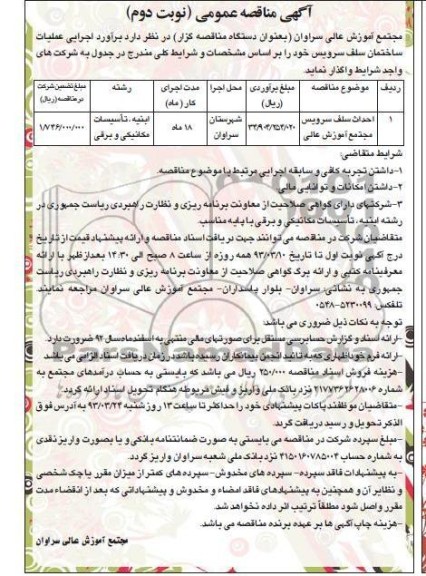 آگهی مناقصه عمومی (نوبت دوم)
مجتمع آموزش عالی سراوان (بعنوان دستگاه مناقصه گزار) در نظر دارد برآورد اجرایی عملیات
ساختمان سلف سرویس خود را بر اساس مشخصات و شرایط کلی مندرج در جدول به شرکت های
واجد شرایط واگذار نماید.
ردیف موضوع مناقصه مبلغ برآوردی (ریال) محل اجرا مدت اجرای کار (ماه) رشته مبلغ تضمین شرکت در مناقصه (ریال)
۱ احداث سلف سرویس مجتمع آموزش عالی شهرستان سراوان ۱۸ ماه ابنیه، تأسیسات مکانیکی و برقی ۱/۷۴۶/۰۰۰/۰۰۰
شرایط متقاضی:
۱-داشتن تجربه کافی و سابقه اجرایی مرتبط با موضوع مناقصه.
۲-داشتن امکانات و توانایی مالی
۳-شرکتهای دارای گواهی صلاحیت از معاونت برنامه ریزی و نظارت راهبردی ریاست جمهوری در
رشته ابنیه، تأسیسات مکانیکی و برقی با پایه مناسب.
متقاضیان شرکت در مناقصه می توانند جهت دریافت اسناد مناقصه و ارائه پیشنهاد قیمت از تاریخ
درج آگهی نوبت اول تا تاریخ ۹۳/۰۳/۱۰ همه روزه از ساعت ۸ صبح الی ۱۴:۳۰ بعدازظهر با ارائه
معرفینامه کتبی و ارائه برگ گواهی صلاحیت از معاونت برنامه ریزی و نظارت راهبردی ریاست
جمهوری به نشانی سراوان- بلوار پاسداران- مجتمع آموزش عالی سراوان مراجعه نمایند
تلفکس: ۵۲۳۰۰۹۹-۰۵۴۸
توجه به نکات ذیل ضروری می باشد:
-ارائه اسناد و گزارش حسابرسی مستقل برای صورتهای مالی منتهی به اسفندماه سال ۹۲ ضرورت دارد.
-ارائه فرم خوداظهاری که به تائید انجمن پیمانکاران رسیده باشد در زمان دریافت اسناد الزامی می باشد
-هزینه فروش اسناد مناقصه ۲۵۰/۰۰۰ ریال می باشد که بایستی به حساب درآمدهای مجتمع به
شماره ۲۱۷۷۳۶۲۶۲۸۰۰۶ نزد بانک ملی واریز و فیش مربوطه هنگام تحویل اسناد ارائه گردد.
-متقاضیان موظفند پاکات پیشنهادی خود را حداکثر تا ساعت ۱۳ روز شنبه ۹۳/۰۳/۲۴ به آدرس فوق
الذکر تحویل و رسید دریافت گردد.
-مبلغ سپرده شرکت در مناقصه می بایستی به صورت ضمانتنامه بانکی و یا بصورت واریز نقدی
به شماره حساب ۲۱۵۰۱۶۰۷۸۵۰۰۴ نزد بانک ملی شعبه سراوان واریز گردد.
-به پیشنهادات فاقد سپرده- سپرده های مخدوش- سپرده های کمتر از میزان مقرر یا چک شخصی
و نظایر آن و همچنین به پیشنهادهای فاقد امضاء و مخدوش و پیشنهاداتی که بعد از انقضاء مدت
مقرر واصل شود مطلقاً ترتیب اثر داده نخواهد شد.
-هزینه چاپ آگهی ها بر عهده برنده مناقصه می باشد.
مجتمع آموزش عالی سراوان